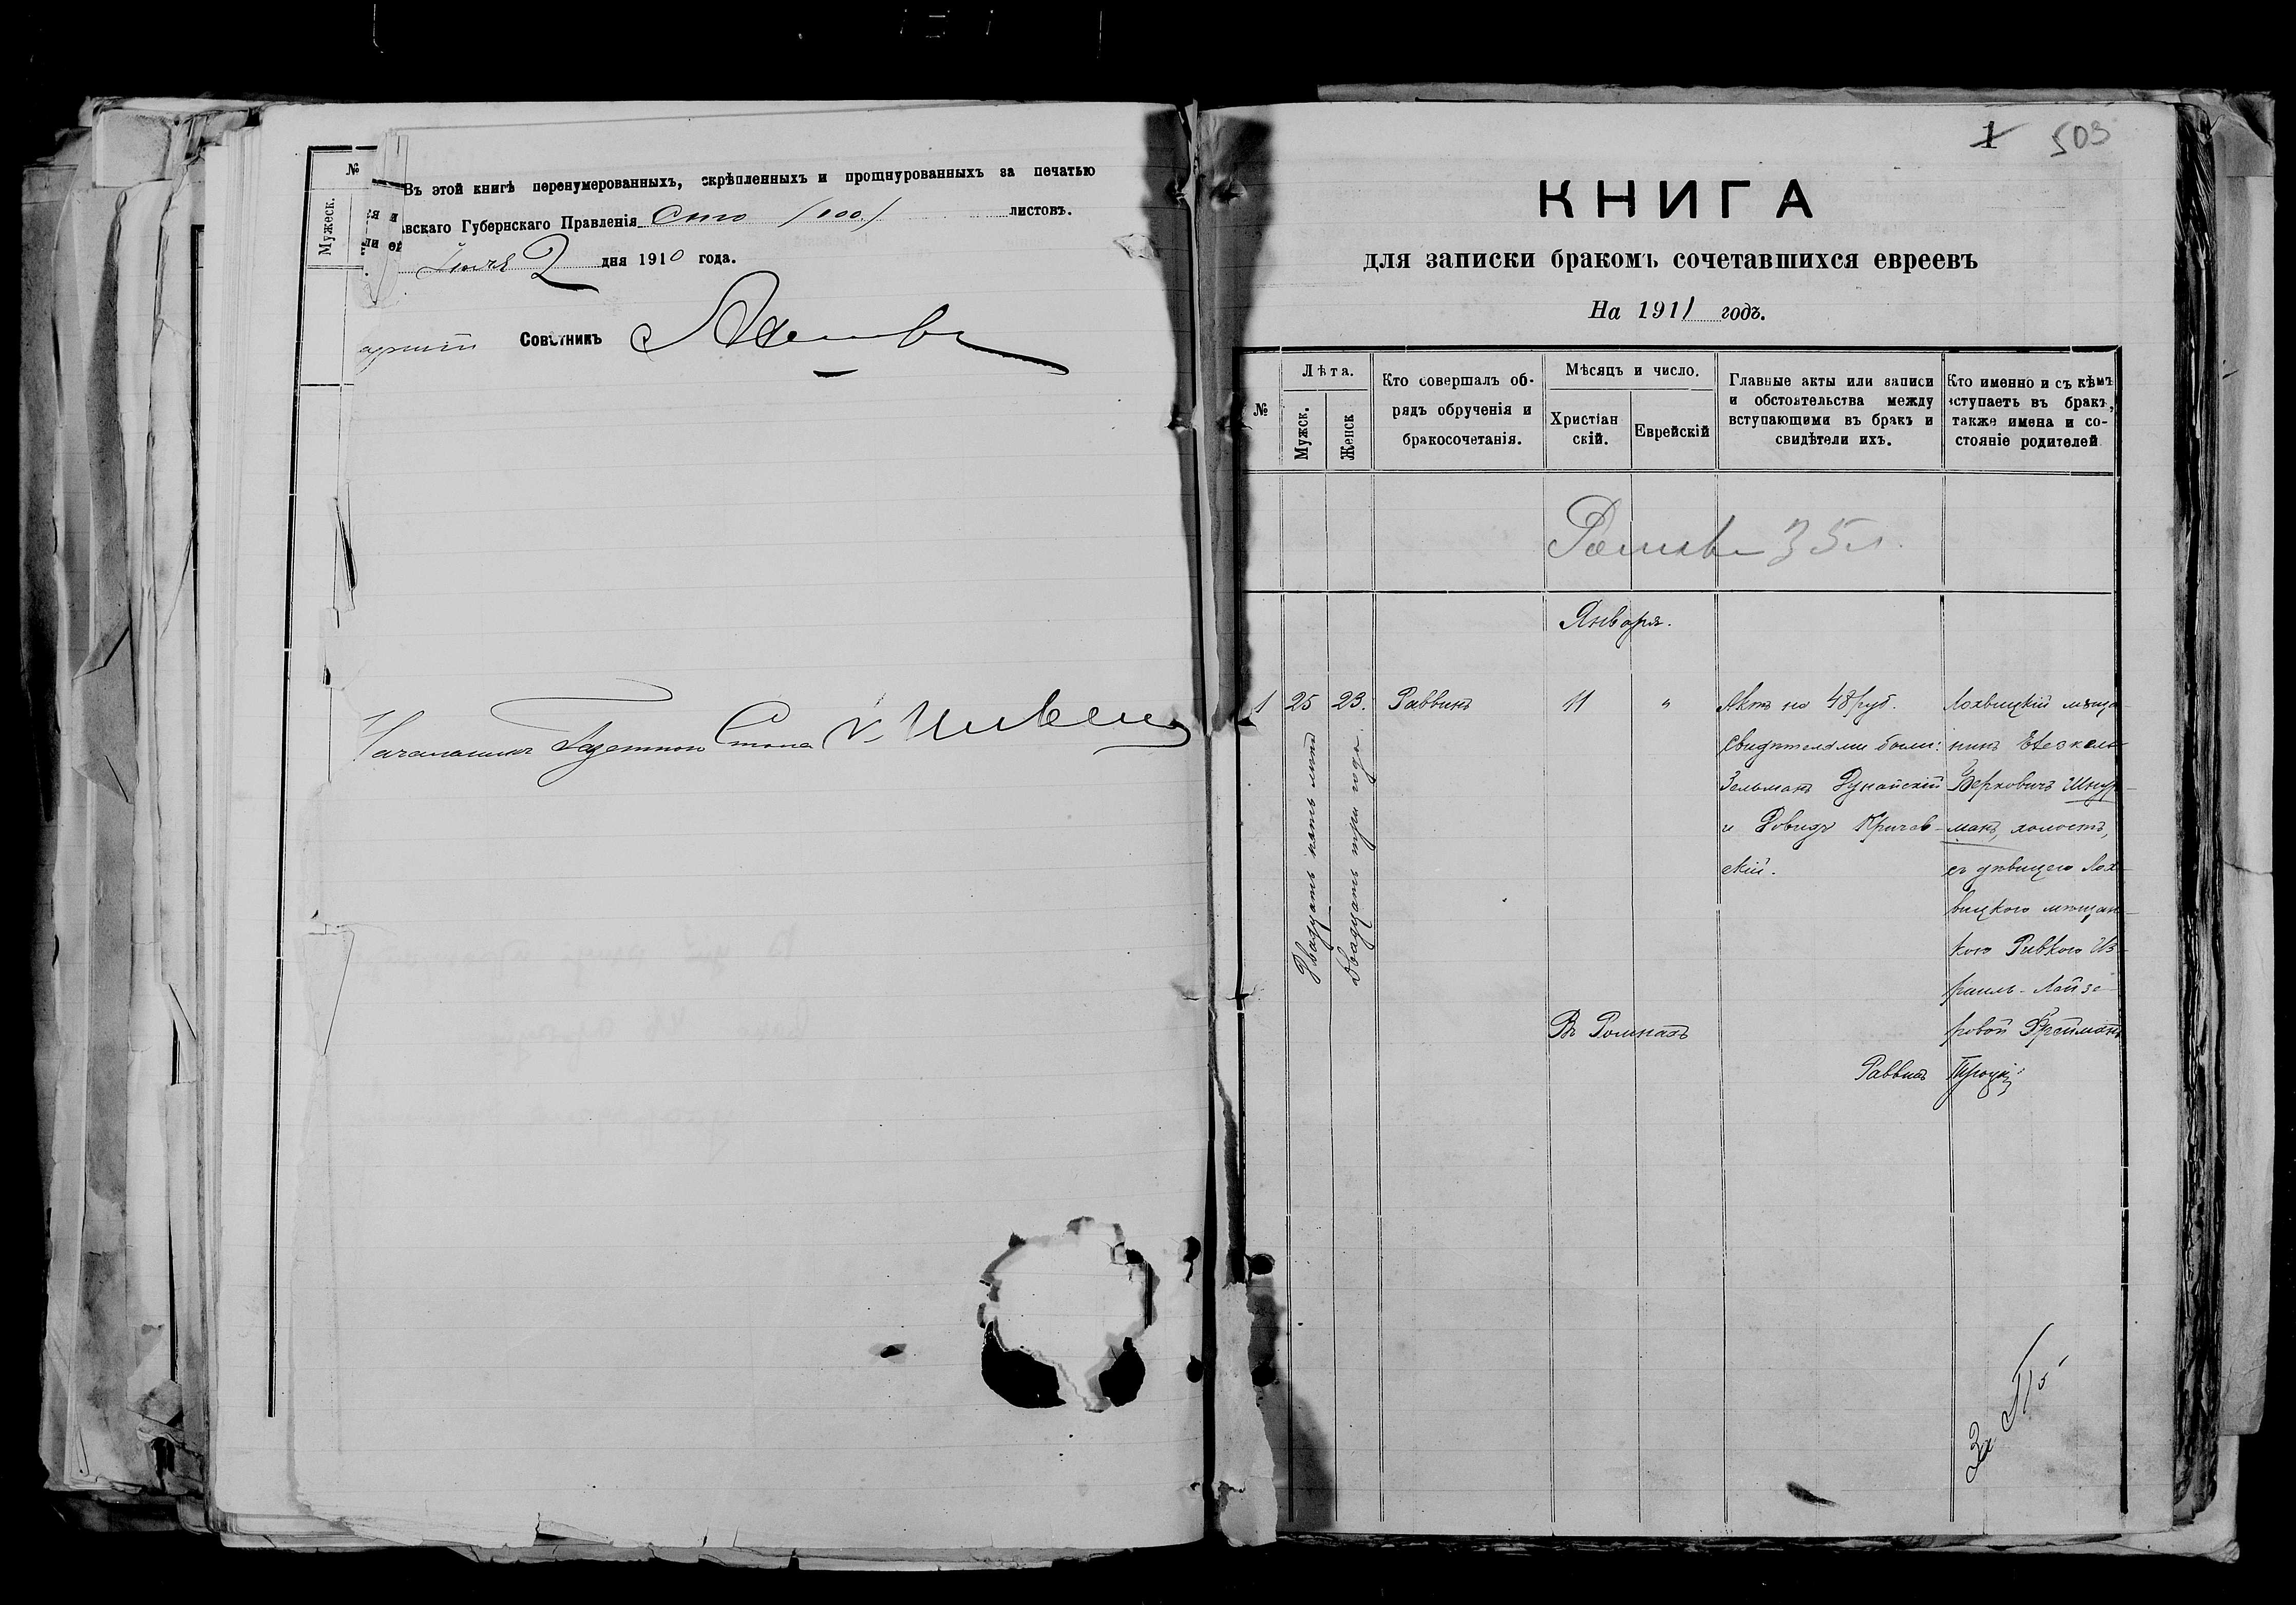 №
Мужеск.
Въ этой книгѣ перенумерованныхъ, скрѣпленныхъ и прошнурованныхъ за печатью
вскаго Губернскаго Правленія Сто /100/ листовъ.
2 дня 1910 года.
Совѣтникъ
Начальникъ Газетнаго Стола
1 503
КНИГА
для записки бракомъ сочетавшихся евреевъ
На 1911 годъ.
№
Лѣта.
Мужск.
Женск
Кто совершалъ об-
рядъ обрученія и
бракосочетанія.
Мѣсяцъ и число.
Христіан
скій.
Еврейскій
Главные акты или записи
и обстоятельства между
вступающими въ бракъ и
свидѣтели ихъ.
Кто именно и съ кѣмъ
вступаетъ въ бракъ,
также имена и со-
стояніе родителей
35
Января.
1 25 23. Раввинъ 11 "
Двадцать пять лѣтъ
Двадцать три года.
Актъ на 48 руб.
Свидѣтелями были:
Зельманъ Дунайскій
и Довидъ Кричев-
скій.
Лохвицкій мѣща-
нинъ Іезекель
Берковичъ Шнур-
манъ, холостъ,
съ дѣвицею Лох-
вицкою мѣщан-
кою Ривкою Из-
раиль-Лайзе-
ровой Фрейманъ
Въ Ромнахъ
Раввинъ Троцкій